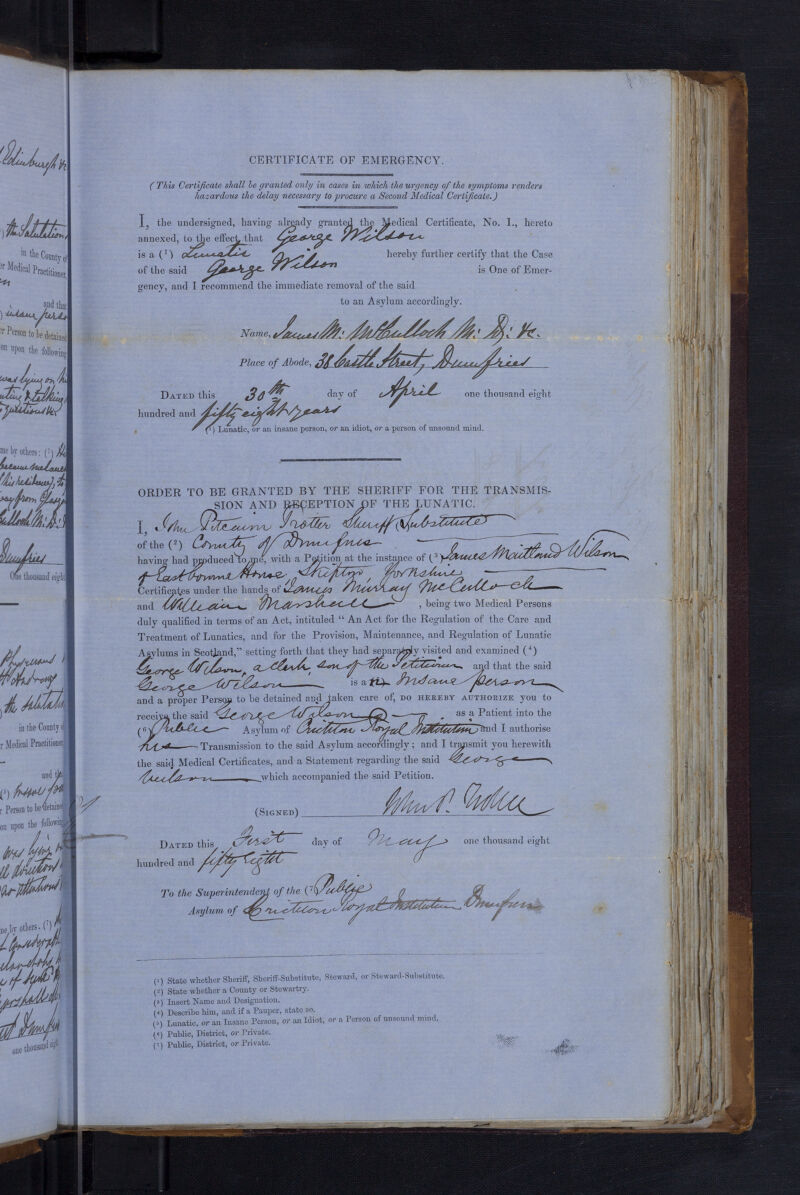 Edinburgh &c
the Salutation
in the County of
er Medical Practitioner,
and that
insane person
r Person to be detained
on upon the following
was lying on his
& talking
questions &c
me by others: (⁷) He
became
his residence, &
way from
McCulloch M: D:
Dumfries
One thousand eight
the Salutation
in the County o
r Medical Practitioner
and
Insane
r Person to be detained
on upon the following
was lying
all
no attention
me by others. (⁷)
of
one thousand eigh
CERTIFICATE OF EMERGENCY.
(This Certificate shall be granted only in cases in which the urgency of the symptoms renders
hazardous the delay necessary to procure a Second Medical Certificate.)
I, the undersigned, having already granted the Medical Certificate, No. I., hereto
annexed, to the effect that George Wilson
is a (¹) Lunatic hereby further certify that the Case
of the said George Wilson is One of Emer-
gency, and I recommend the immediate removal of the said
to an Asylum accordingly.
Name, James M: McCulloch M: D: &c.
Place of Abode, 38 Castle Street, Dumfries
DATED this 30th day of April one thousand eight
hundred and fifty eight years
(¹) Lunatic, or an insane person, or an idiot, or a person of unsound mind.
ORDER TO BE GRANTED BY THE SHERIFF FOR THE TRANSMIS-
SION AND RECEPTION OF THE LUNATIC.
I, John Pitcairn Trotter Sheriff Substitute
of the (²) County of Dumfries
having had produced to me, with a Petition at the instance of (³) James Maitland Wilson
of Eastbourne House, Skipton, Yorkshire
Certificates under the hands of James Murray McCulloch
and William Marshall, being two Medical Persons
duly qualified in terms of an Act, intituled “ An Act for the Regulation of the Care and
Treatment of Lunatics, and for the Provision, Maintenance, and Regulation of Lunatic
Asylums in Scotland,” setting forth that they had separately visited and examined (⁴)
George Wilson, a Clerk, son of the Petitioner and that the said
George Wilson is a n (⁵) Insane person
and a proper Person to be detained and taken care of, DO HEREBY AUTHORIZE you to
receive the said George Wilson as a Patient into the
(⁶) Public Asylum of Crichton Royal Institution and I authorise
his Transmission to the said Asylum accordingly ; and I transmit you herewith
the said Medical Certificates, and a Statement regarding the said George
Wilson which accompanied the said Petition.
(SIGNED) John P. Trotter
DATED this First day of May one thousand eight
hundred and fifty Eight
To the Superintendent of the (⁷) Public
Asylum of Crichton Royal Institution Dumfries
(¹) State whether Sheriff, Sheriff-Substitute, Steward, or Steward-Substitute.
(²) State whether a County or Stewartry.
(³) Insert Name and Designation.
(⁴) Describe him, and if a Pauper, state so.
(⁵) Lunatic, or an Insane Person, or an Idiot, or a Person of unsound mind.
(⁶) Public, District, or Private.
(⁷) Public, District, or Private.